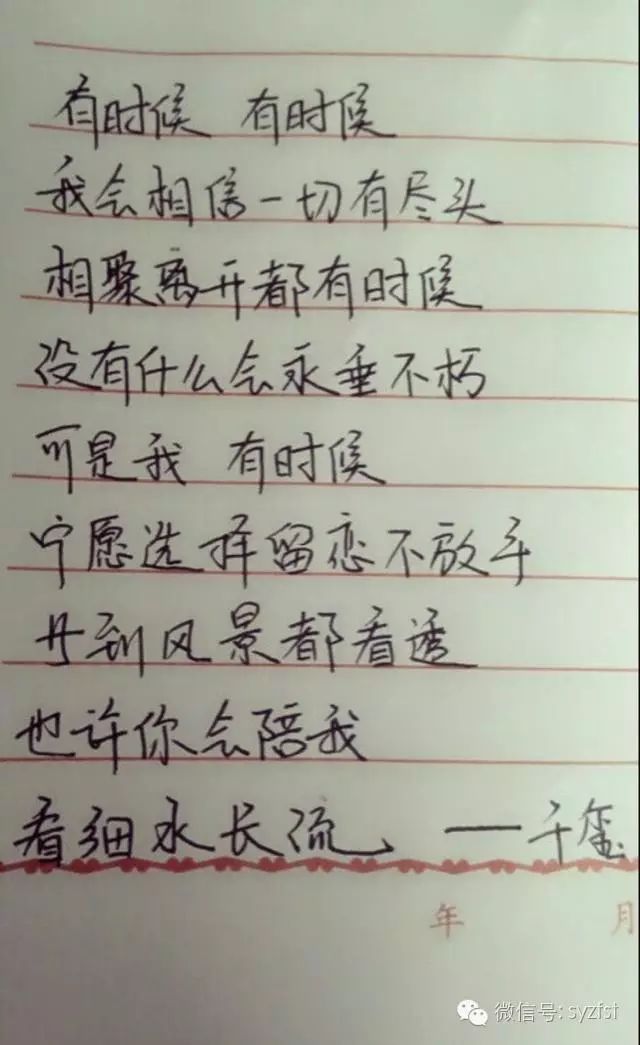 有时候 有时候
我会相信一切有尽头
相聚离开都有时候
没有什么会永垂不朽
可是我 有时候
宁愿选择留恋不放手
等到风景都看透
也许你会陪我
看细水长流 ——千玺
年 月
微信号: syzfst